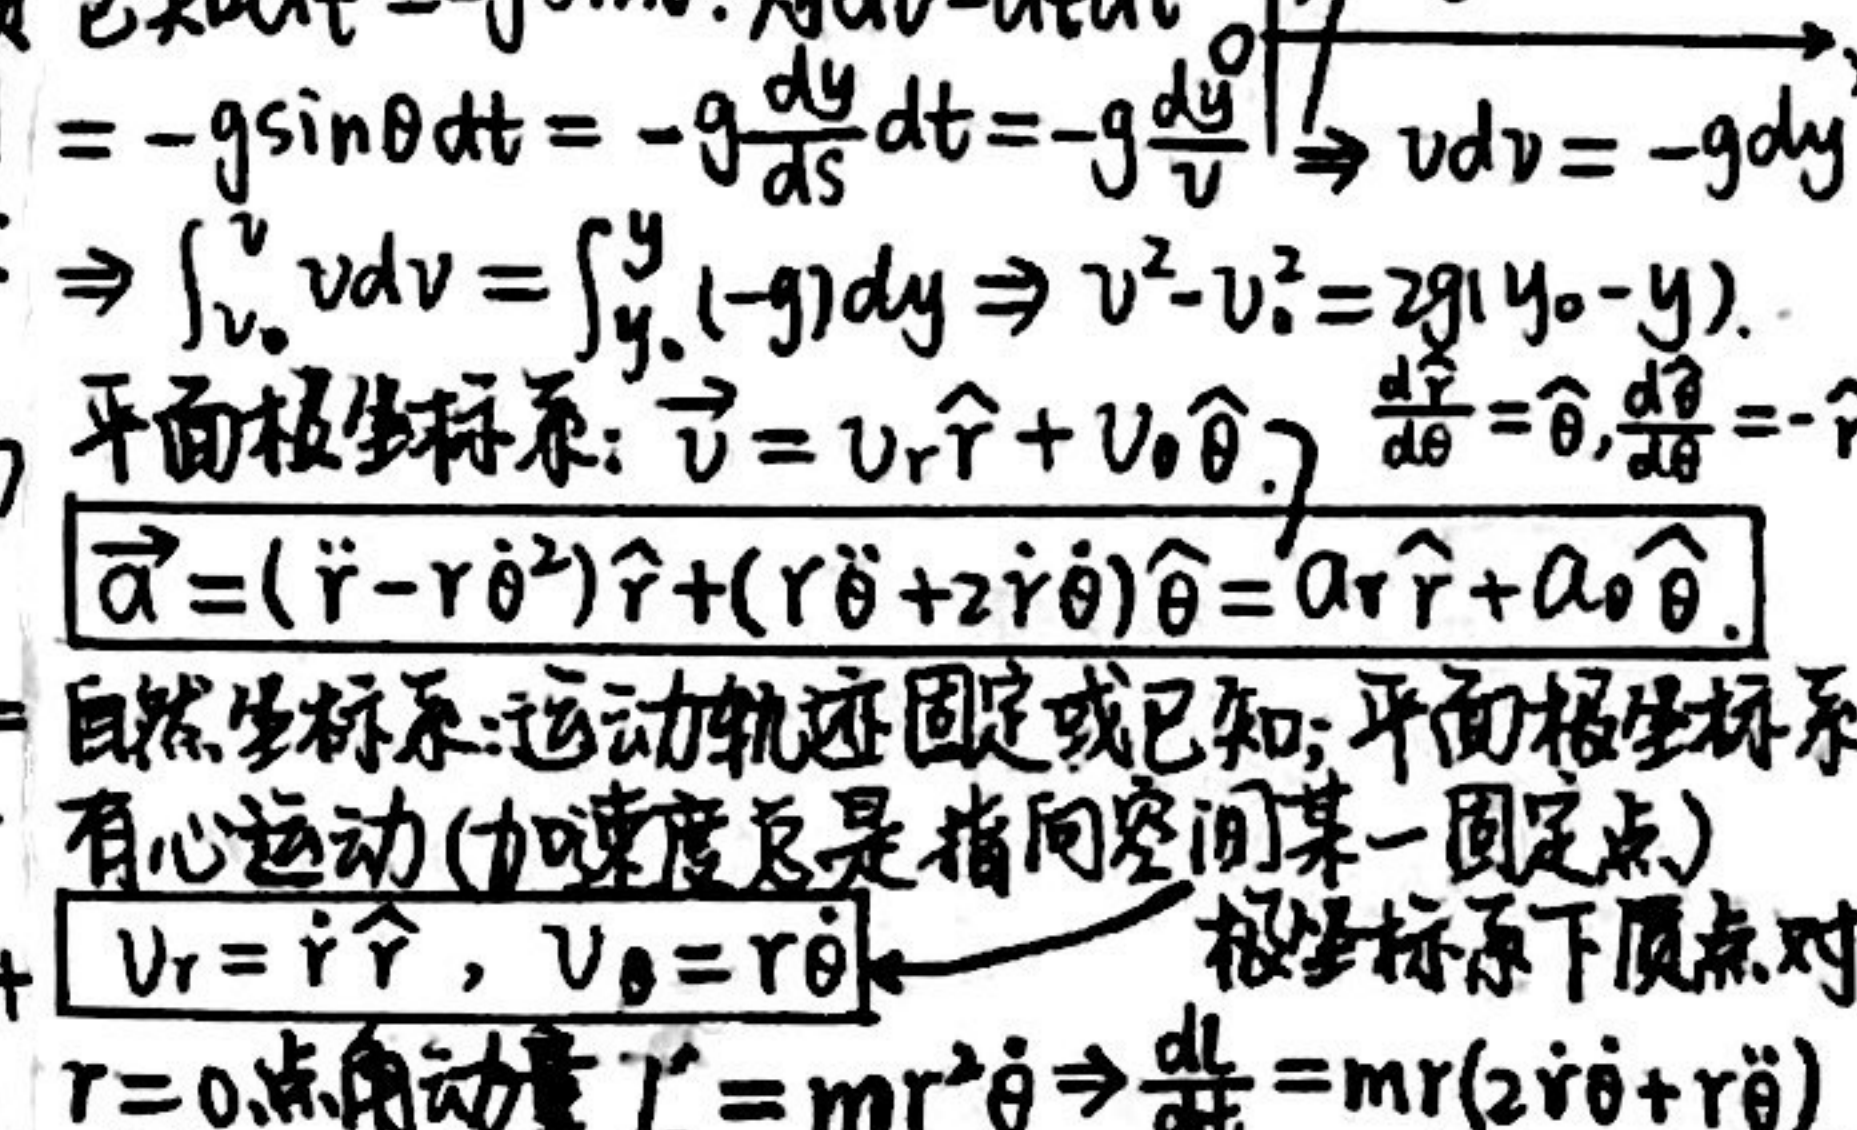 = -gsinθdt = -g dy/ds dt = -g dy/v ⇒ vdv = -gdy
⇒ ∫_{v₀}^{v} vdv = ∫_{y₀}^{y} (-g)dy ⇒ v² - v₀² = 2g(y₀ - y).
平面极坐标系: v⃗ = v_r r̂ + v_θ θ̂. dr̂/dθ = θ̂, dθ̂/dθ = -r̂
a⃗ = (r̈ - rθ̇²)r̂ + (rθ̈ + 2ṙθ̇)θ̂ = a_r r̂ + a_θ θ̂.
自然坐标系:运动轨迹固定或已知; 平面极坐标系
有心运动(加速度总是指向空间某一固定点)
v_r = ṙ r̂ , v_θ = rθ̇ 极坐标系下质点对
r = 0点角动量 = mr²θ̇ ⇒ dL/dt = mr(2ṙθ̇ + rθ̈)